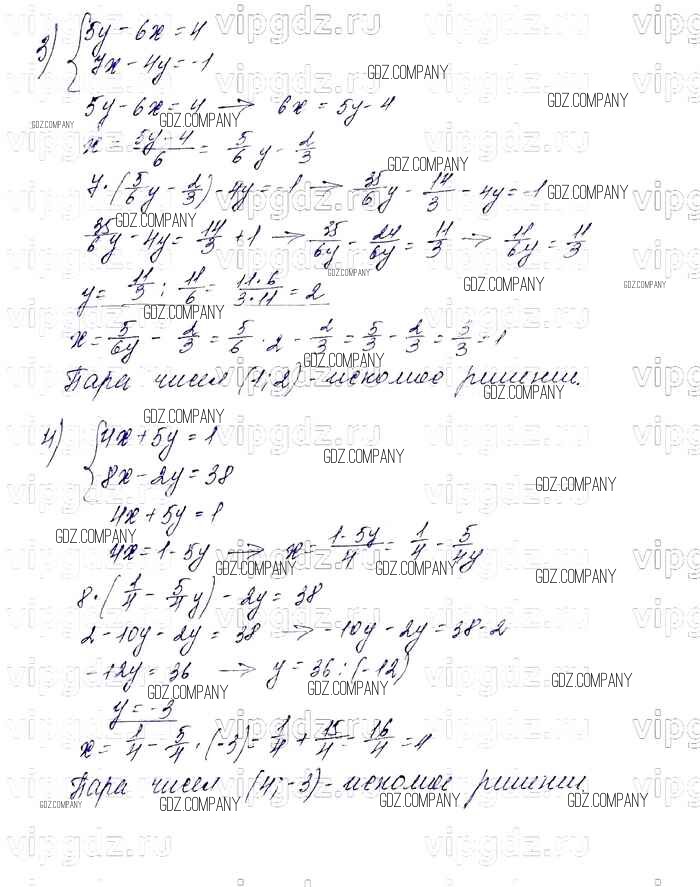 3) { 5y - 6x = 4
7x - 4y = -1
5y - 6x = 4 → 6x = 5y - 4
x = (5y - 4)/6 = 5/6 y - 2/3
7 · (5/6 y - 2/3) - 4y = -1 → 35/6 y - 14/3 - 4y = -1
35/6 y - 4y = 14/3 + 1 → 35/6y - 24/6y = 11/3 → 11/6y = 11/3
y = 11/3 : 11/6 = 11·6/3·11 = 2
x = 5/6y - 2/3 = 5/6 · 2 - 2/3 = 5/3 - 2/3 = 3/3 = 1
Пара чисел (1; 2) - искомое решение.
4) { 4x + 5y = 1
8x - 2y = 38
4x + 5y = 1
4x = 1 - 5y → x = (1 - 5y)/4 = 1/4 - 5/4y
8 · (1/4 - 5/4 y) - 2y = 38
2 - 10y - 2y = 38 → -10y - 2y = 38 - 2
-12y = 36 → y = 36 : (-12)
y = -3
x = 1/4 - 5/4 · (-3) = 1/4 + 15/4 = 16/4 = 4
Пара чисел (4; -3) - искомое решение.
GDZ.COMPANY
vipgdz.ru